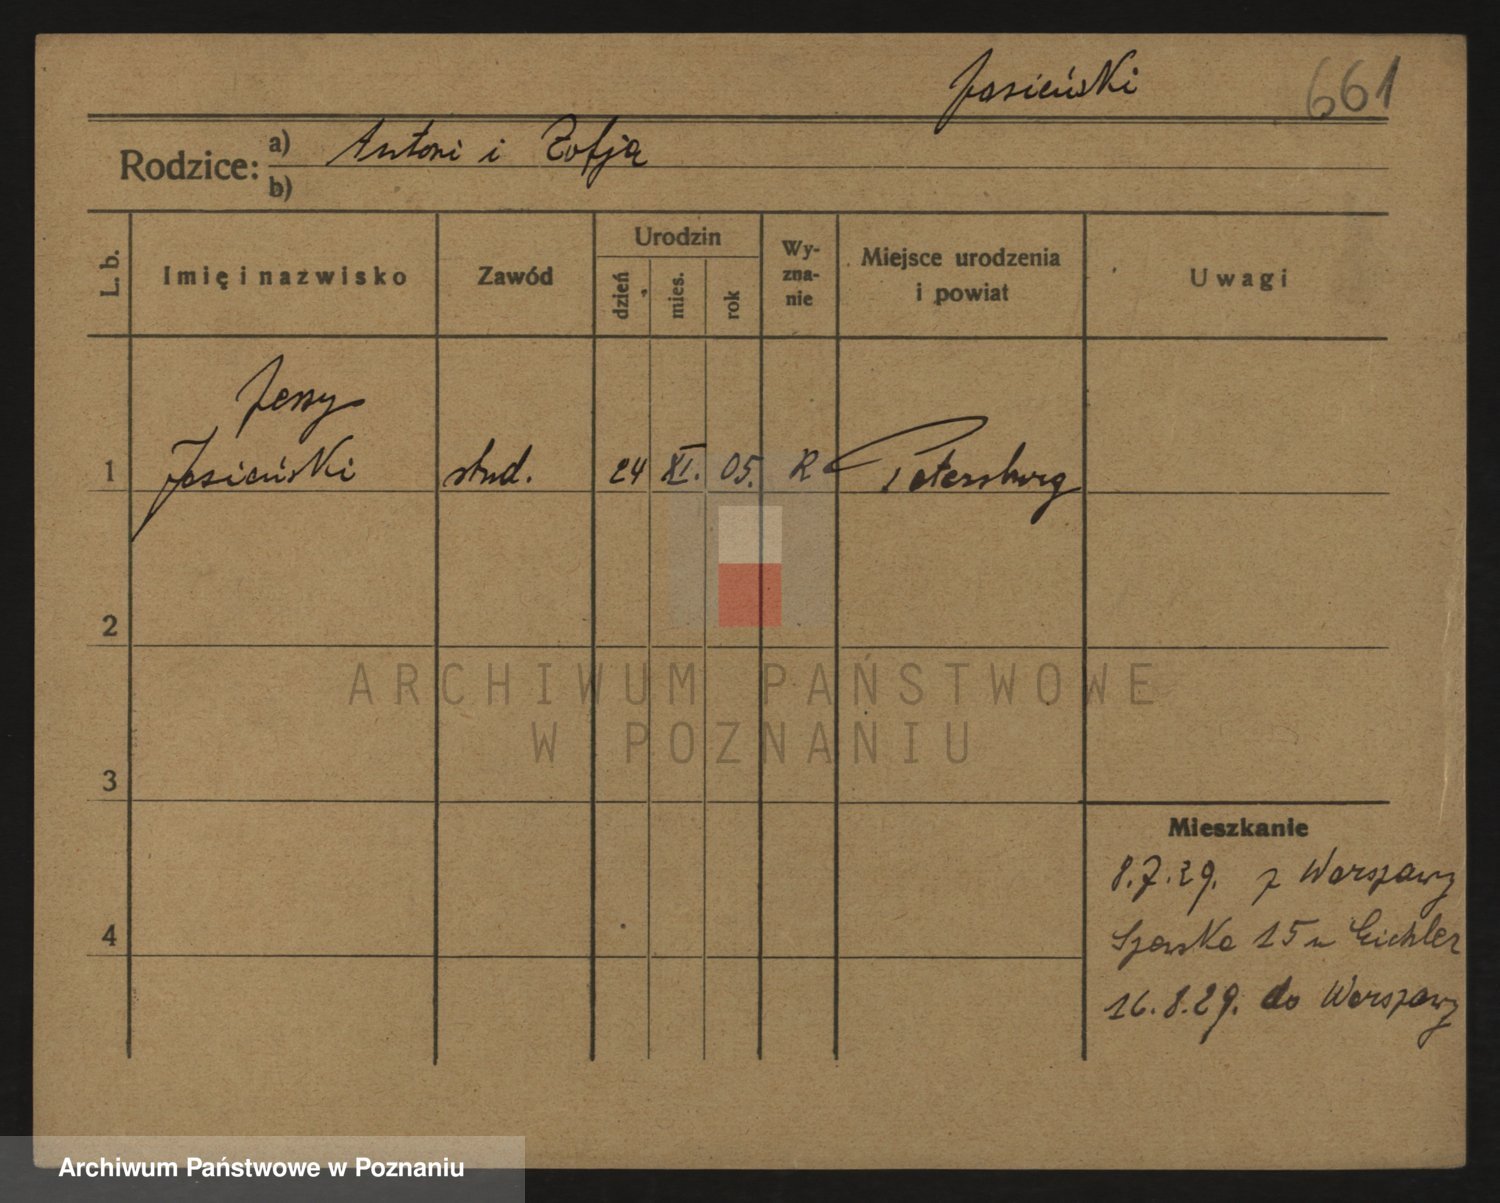 Jasieński
661
Rodzice: a) Antoni i Zofja
b)
L. b.
Imię i nazwisko
Zawód
Urodzin
dzień
mies.
rok
Wy-
zna-
nie
Miejsce urodzenia
i powiat
Uwagi
Jerzy
1 Jasieński stud. 24 XI. 05. R Petersburg
2
3
4
Mieszkanie
8.7.29. z Warszawy
15 u Eichler
16.8.29. do Warszawy
ARCHIWUM PAŃSTWOWE
W POZNANIU
Archiwum Państwowe w Poznaniu